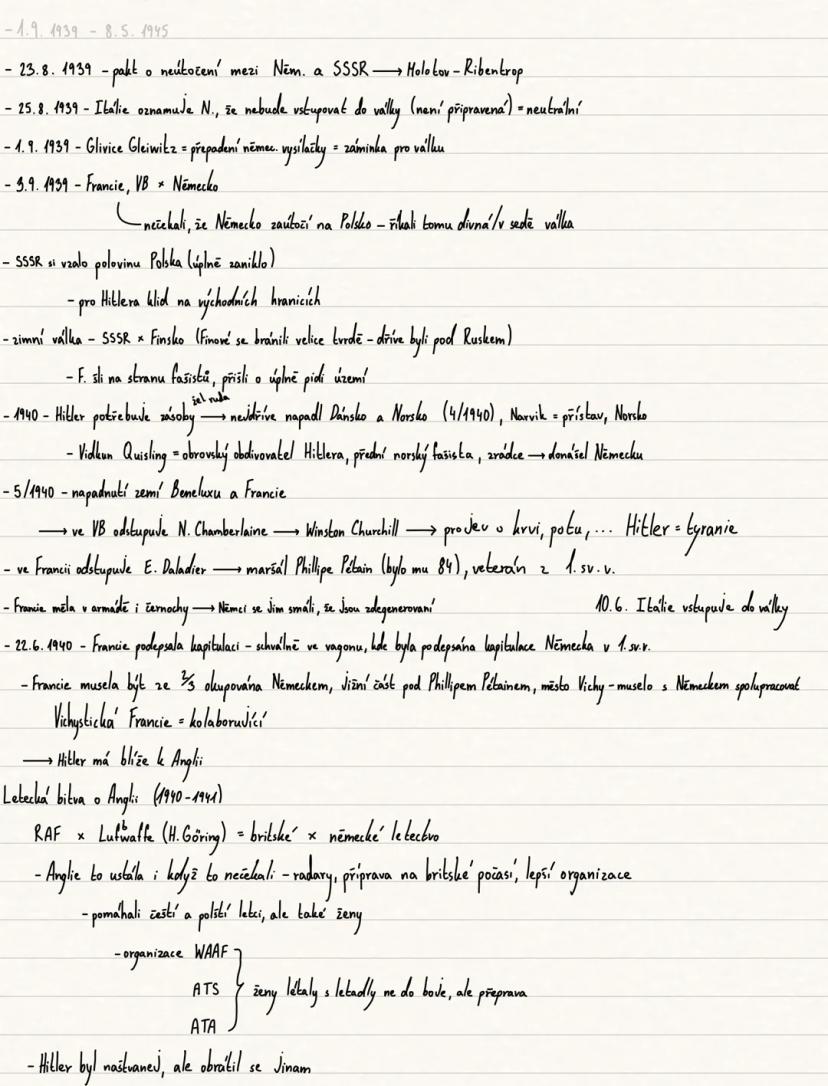 - 1.9. 1939 - 8.5. 1945
- 23.8. 1939 - pakt o neútočení mezi Něm. a SSSR → Molotov - Ribentrop
- 25.8. 1939 - Itálie oznamuje N., že nebude vstupovat do války (není připravená) = neutrální
- 1.9. 1939 - Glivice Gleiwitz = přepadení němec. vysílačky = záminka pro válku
- 3.9. 1939 - Francie, VB × Německo
nečekali, že Německo zaútočí na Polsko - říkali tomu divná/v sedě válka
- SSSR si vzalo polovinu Polska (úplně zaniklo)
- pro Hitlera klid na východních hranicích
- zimní válka - SSSR × Finsko (Finové se bránili velice tvrdě - dříve byli pod Ruskem)
- F. šli na stranu fašistů, přišli o úplně pidi území
žel. ruda
- 1940 - Hitler potřebuje zásoby → nejdříve napadl Dánsko a Norsko (4/1940), Narvik = přístav, Norsko
- Vidkun Quisling = obrovský obdivovatel Hitlera, přední norský fašista, zrádce → donášel Německu
- 5/1940 - napadnutí zemí Beneluxu a Francie
→ ve VB odstupuje N. Chamberlaine → Winston Churchill → projev o krvi, potu, ... Hitler = tyranie
- ve Francii odstupuje E. Daladier → maršál Phillipe Pétain (bylo mu 84), veterán z 1. sv. v.
- Francie měla v armádě i černochy → Němci se jim smáli, že jsou zdegenerovaní 10.6. Itálie vstupuje do války
- 22.6. 1940 - Francie podepsala kapitulaci - schválně ve vagonu, kde byla podepsána kapitulace Německa v 1. sv. v.
- Francie musela být ze 2/3 okupována Německem, jižní část pod Phillipem Pétainem, město Vichy - muselo s Německem spolupracovat
Vichystická Francie = kolaborující
→ Hitler má blíže k Anglii
Letecká bitva o Anglii (1940 - 1941)
RAF × Luftwaffe (H. Göring) = britské × německé letectvo
- Anglie to ustála i když to nečekali - radary, příprava na britské počasí, lepší organizace
- pomáhali čeští a polští letci, ale také ženy
- organizace WAAF
ATS } ženy létaly s letadly ne do boje, ale přeprava
ATA
- Hitler byl naštvanej, ale obrátil se jinam